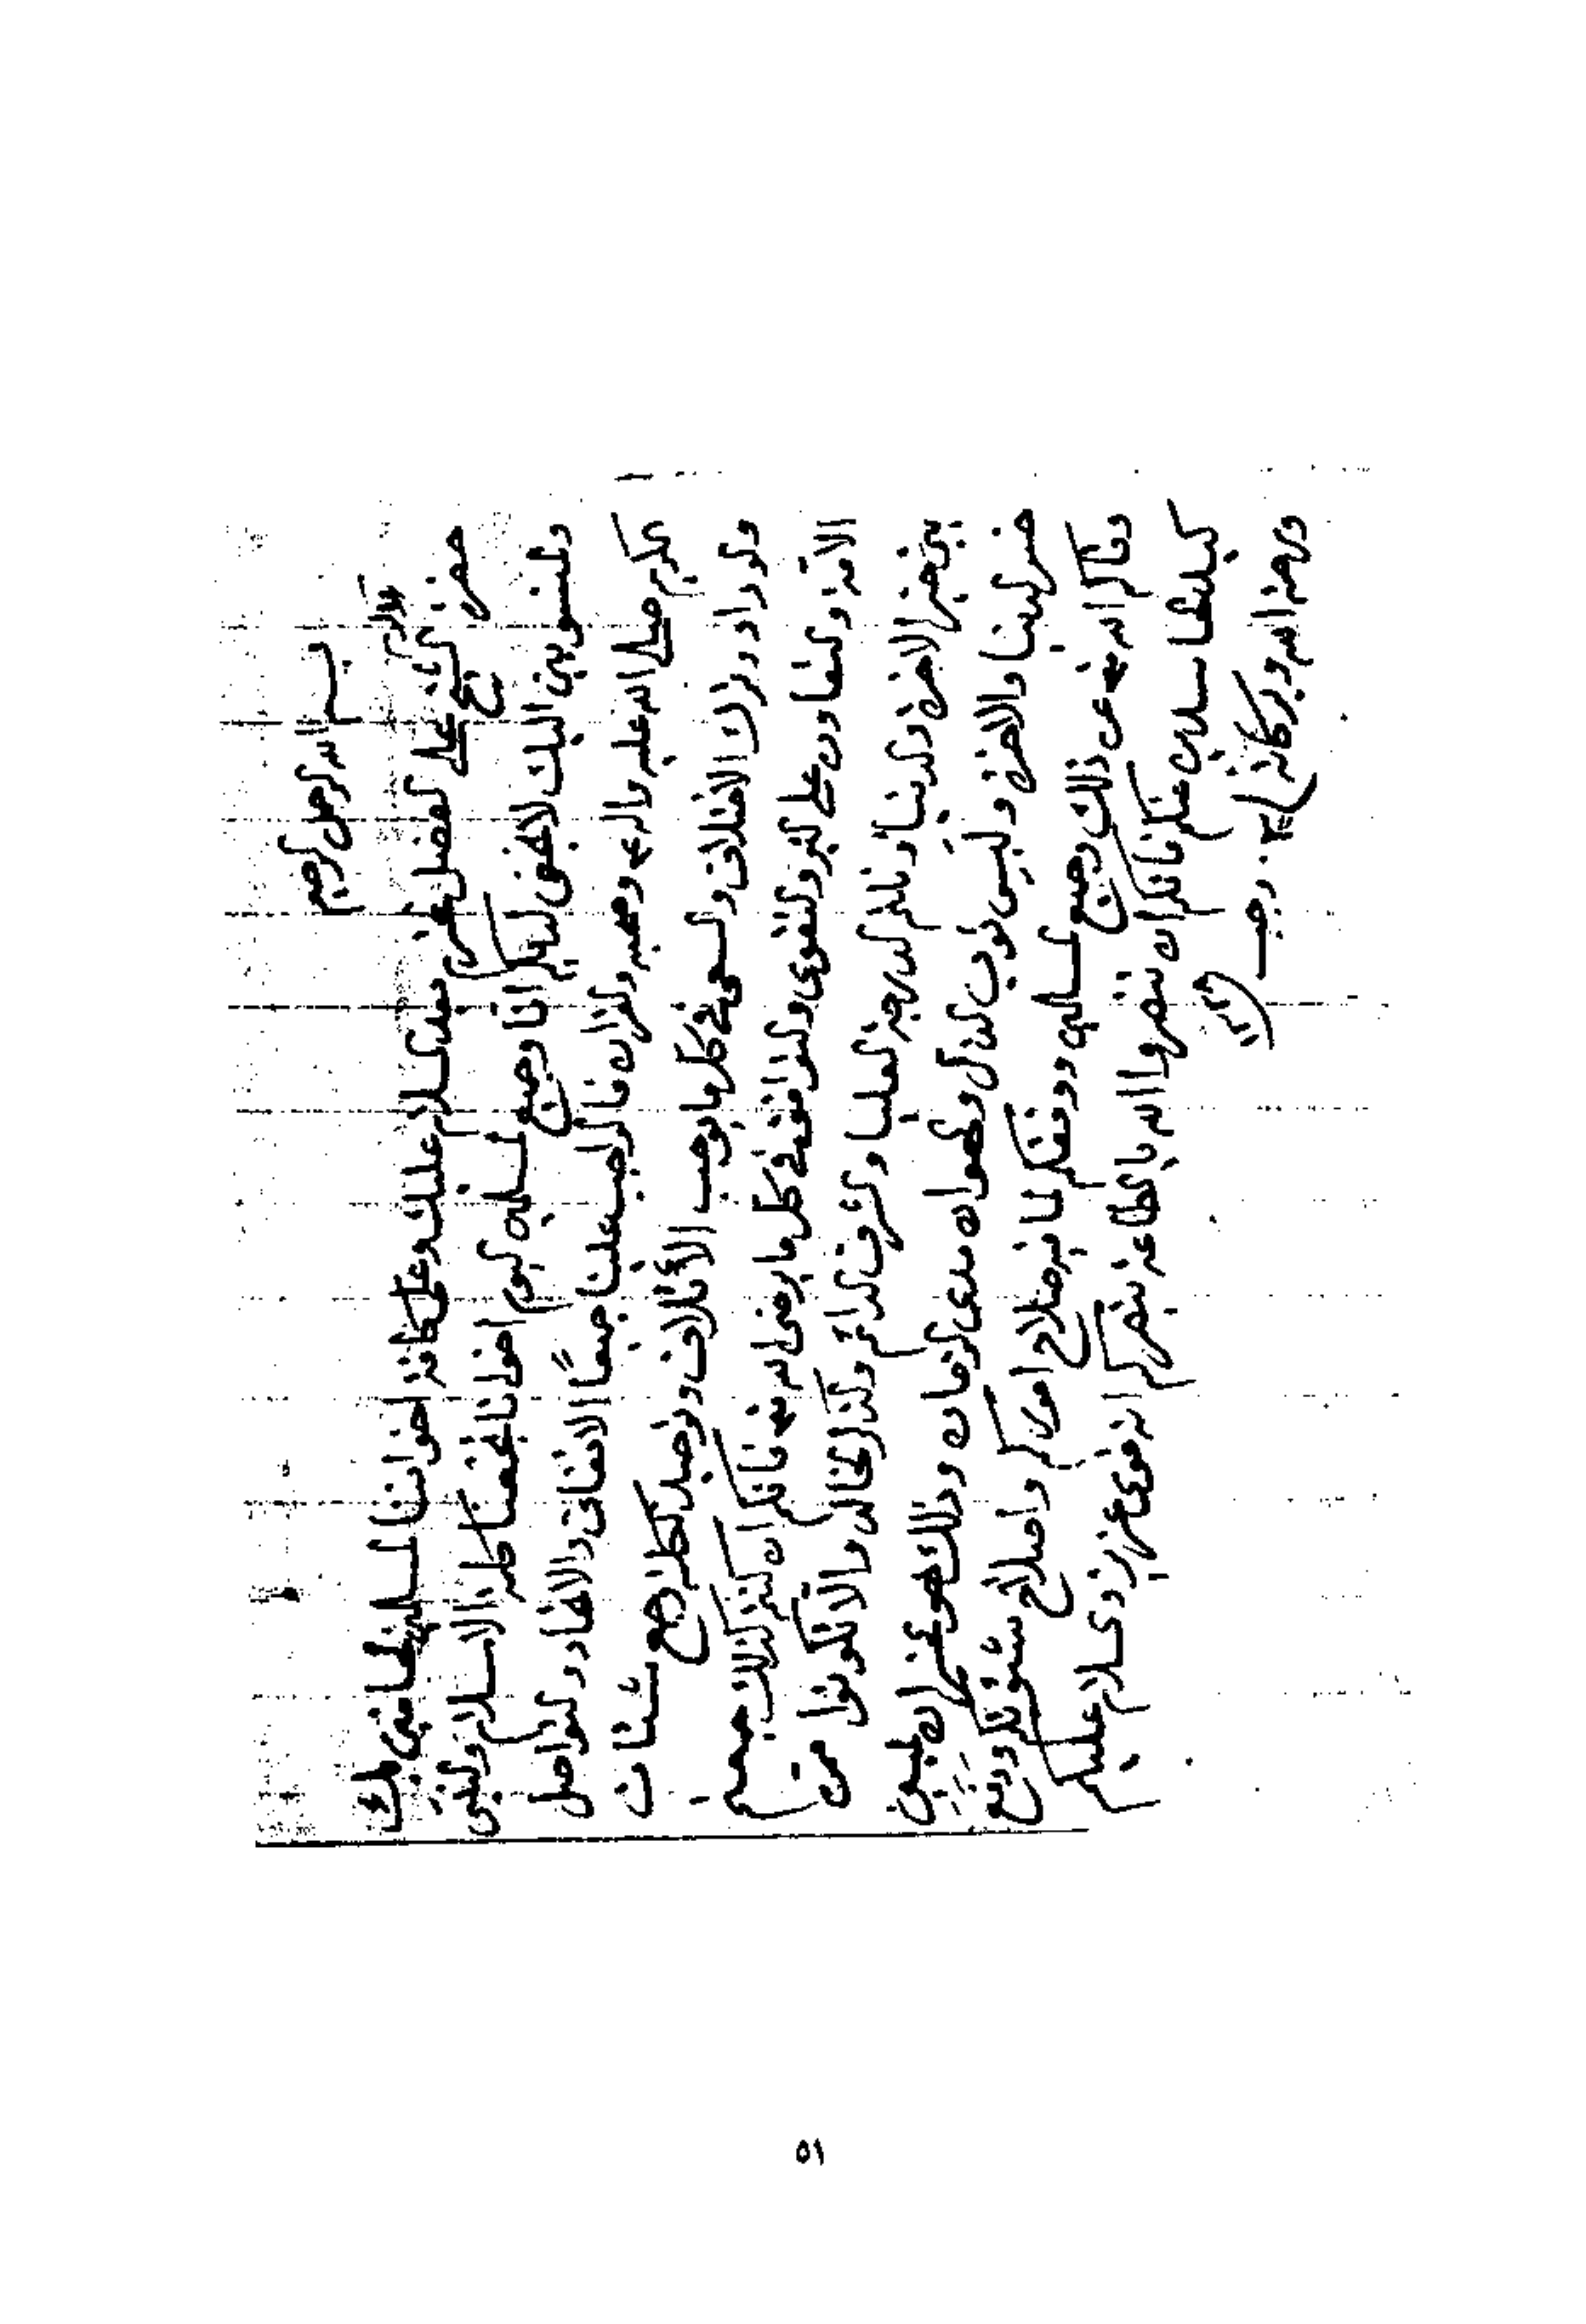 بسم الله الرحمن الرحيم
حضرة الشيخ علي الفضل المحترم بعد السلام عليك وعلى كافة اخواننا المسلمين القاطنين هناك
والمنسوبين اليك لا يخفى لديكم انا وجميع المسلمين اليوم اخوانا تجمعنا كلمة الاسلام والنبي
الكريم صلى الله عليه واله وصحبه والقران فالواجب علينا جميعاً الاتفاق والاتحاد والتواصل
والوداد وترك الاختلاف والسعي في كل ما يوجب الائتلاف وتوحيد الكلمة وجمع شتات
الامة والتعاون على البر والتقوى والموافقة في كل ما يرضى الله تع فانكم ان كنتم كذلك جمعتم
بين خير الاخرة والدنيا ونلتم الدرجة العليا والشرف الدائم والذكر الخالد والا تكونوا ممن
خسر الدنيا والاخرة ولبس ثوب الذل والهوان مدى الزمان وذلك هو الخسران المبين
وقاكم الله تع عن ذلك وجميع المسلمين ووفقكم لما فيه صلاح اموركم واصلاح شئونكم ودفع
كيد اعدائكم فانكم ان تنصروا الله بالطاعة ينصركم انه قوي عزيز والسلام عليكم
ورحمة الله وبركاته
٢٠ رجب